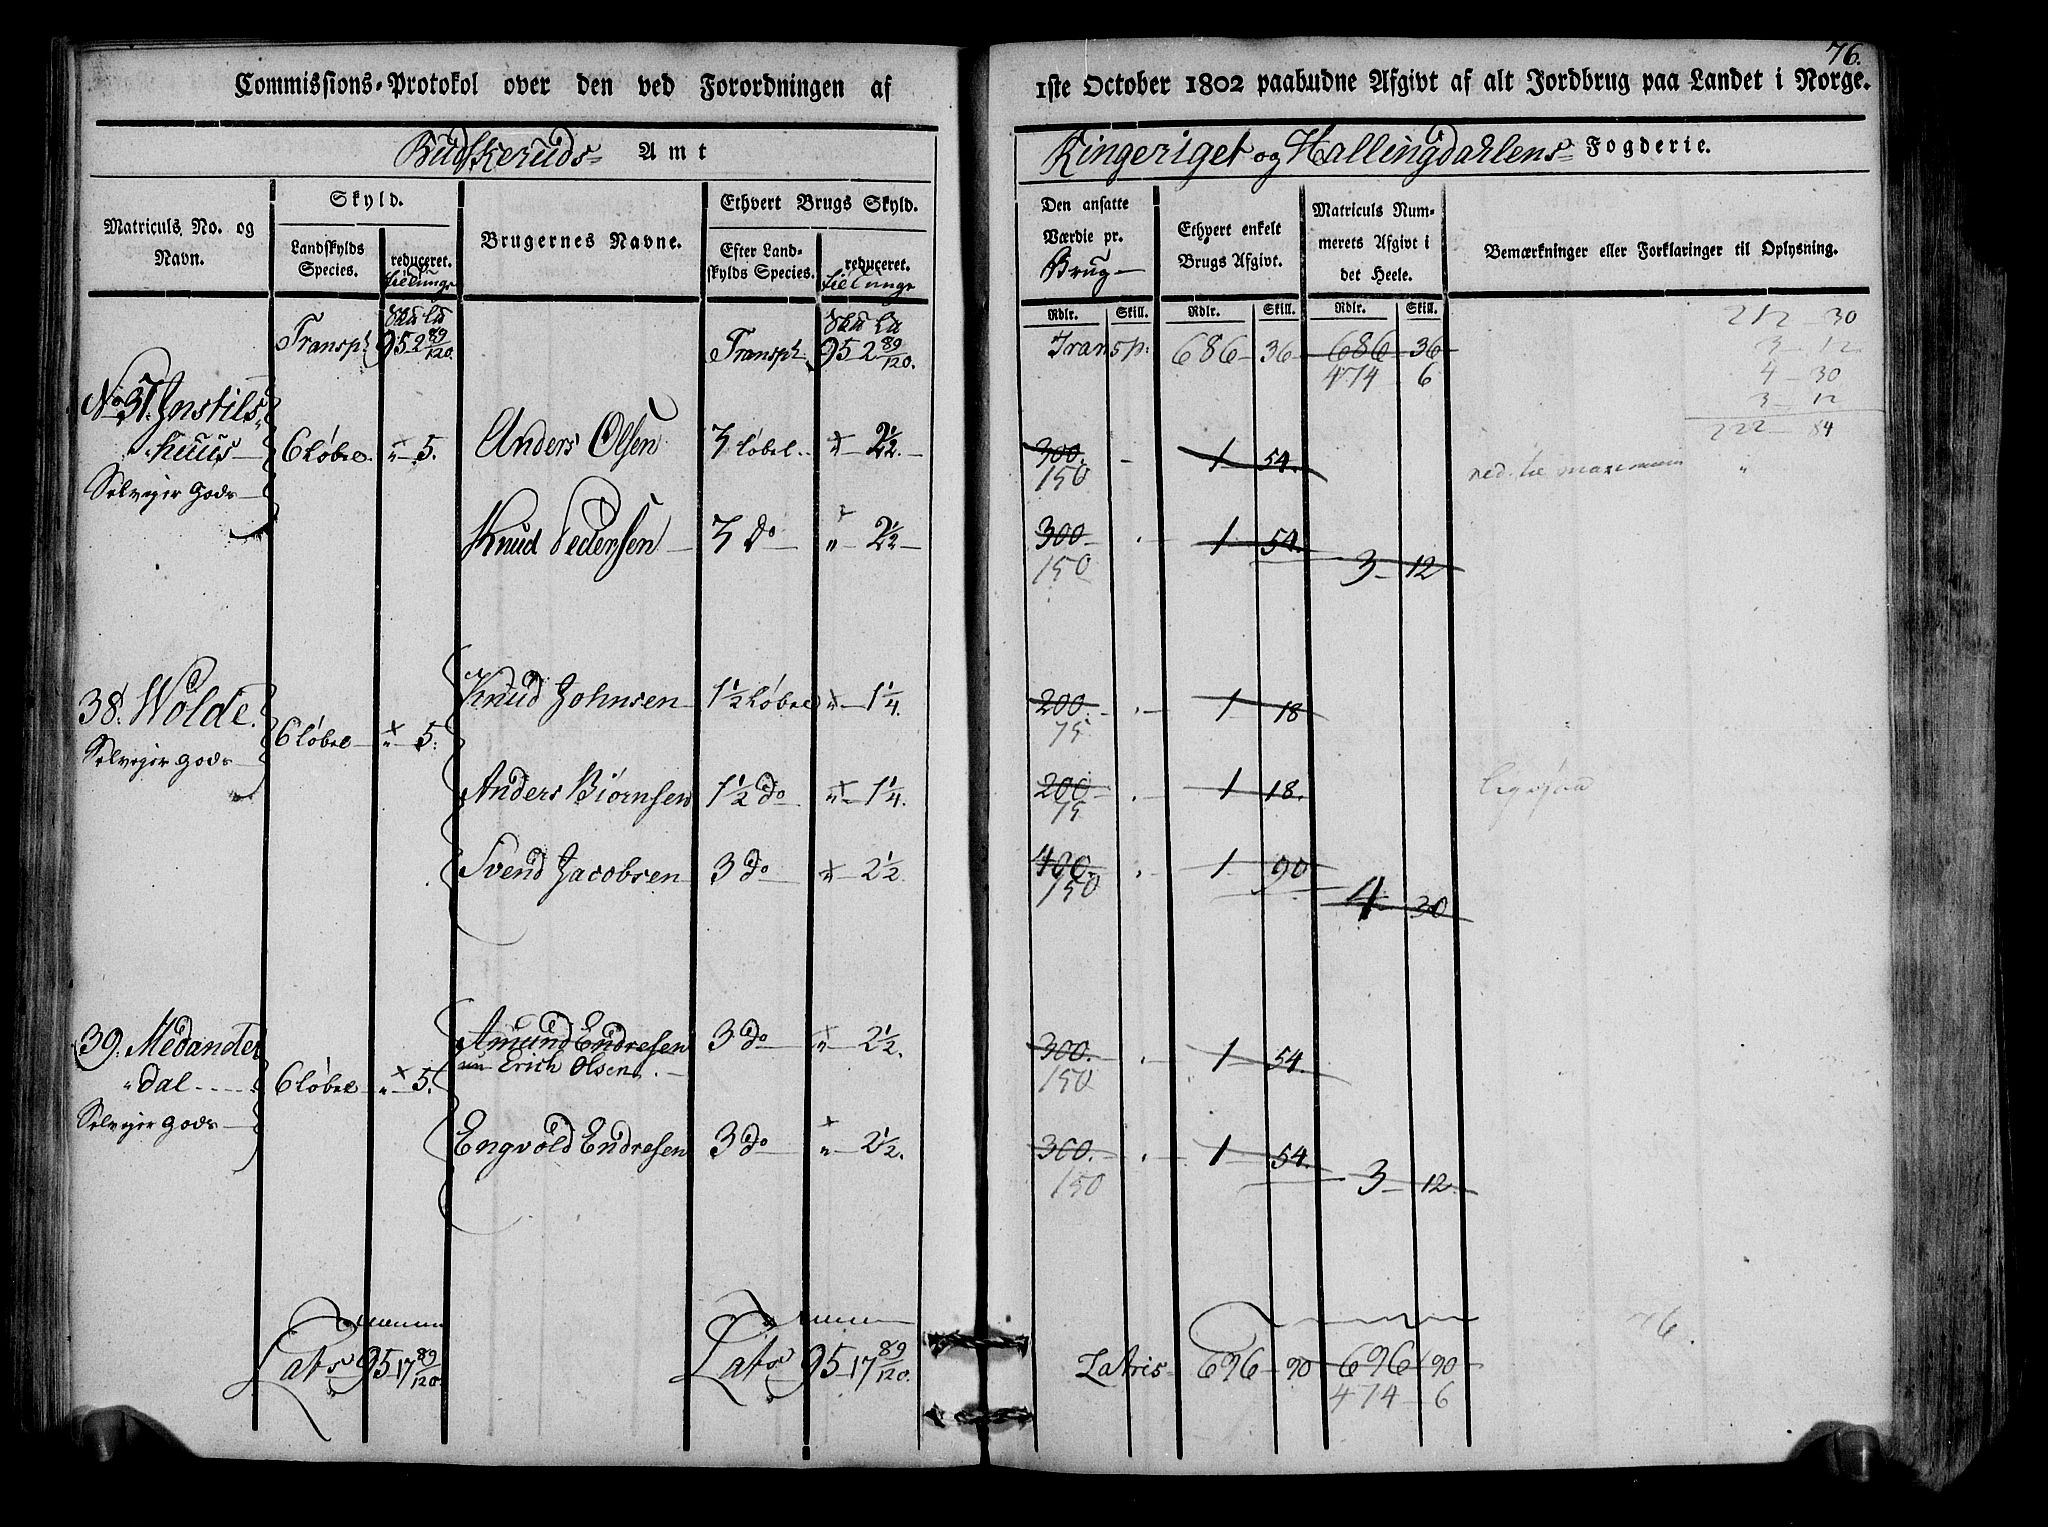 76.
Commissions-Protokol over den ved Forordningen af
1ste October 1802 paabudne Afgivt af alt Jordbrug paa Landet i Norge.
Budskeruds- Amt
Ringeriget og Hallingdahlens- Fogderie.
Matriculs No. og Navn.
Skyld.
Landskylds Species.
reduceret.
Brugernes Navne.
Ethvert Brugs Skyld.
Efter Landskylds Species.
reduceret.
Den ansatte Værdie pr. Brug
Ethvert enkelt Brugs Afgivt.
Matriculs Nummerets Afgivt i det Heele.
Bemærkninger eller Forklaringer til Oplysning.
Rdlr. Skill. Rdlr. Skill. Rdlr. Skill.
Transpt 95 2 89/120. Transpt 95 2 89/120. Transp: 686 36 686 36
474 6
212 - 30
3 - 12
4 - 30
3 - 12
222 - 84
No 37. Instils-
huus 6 løbel. " 5. Anders Olsen 3 løbel " 2 1/2 300. 1 54.
150
Selveier Gods
Knud Pedersen 3 do " 2 1/2 300 1 54. 3 12
150
38. Wolde. Knud Johnsen 1 1/2 Løbel " 1 1/4. 200. 1 18
75
6 løbel " 5.
Selveier Gods
Anders Biørnsen 1 1/2 do " 1 1/4. 200 1 18.
75
Svend Jacobsen 3 do " 2 1/2. 400. 1 90 4 30
150
39. Medander Amund Endresen 3 do " 2 1/2. 300. 1 54.
"dal 6 løbel " 5. nu Erich Olsen 150
Selveier Gods
Engvold Endresen 3 do " 2 1/2. 300. 1 54. 3 12
150
76.
Lats 95 17 89/120. Lats 95 17 89/120. Latris 696 90 696 90
474 6